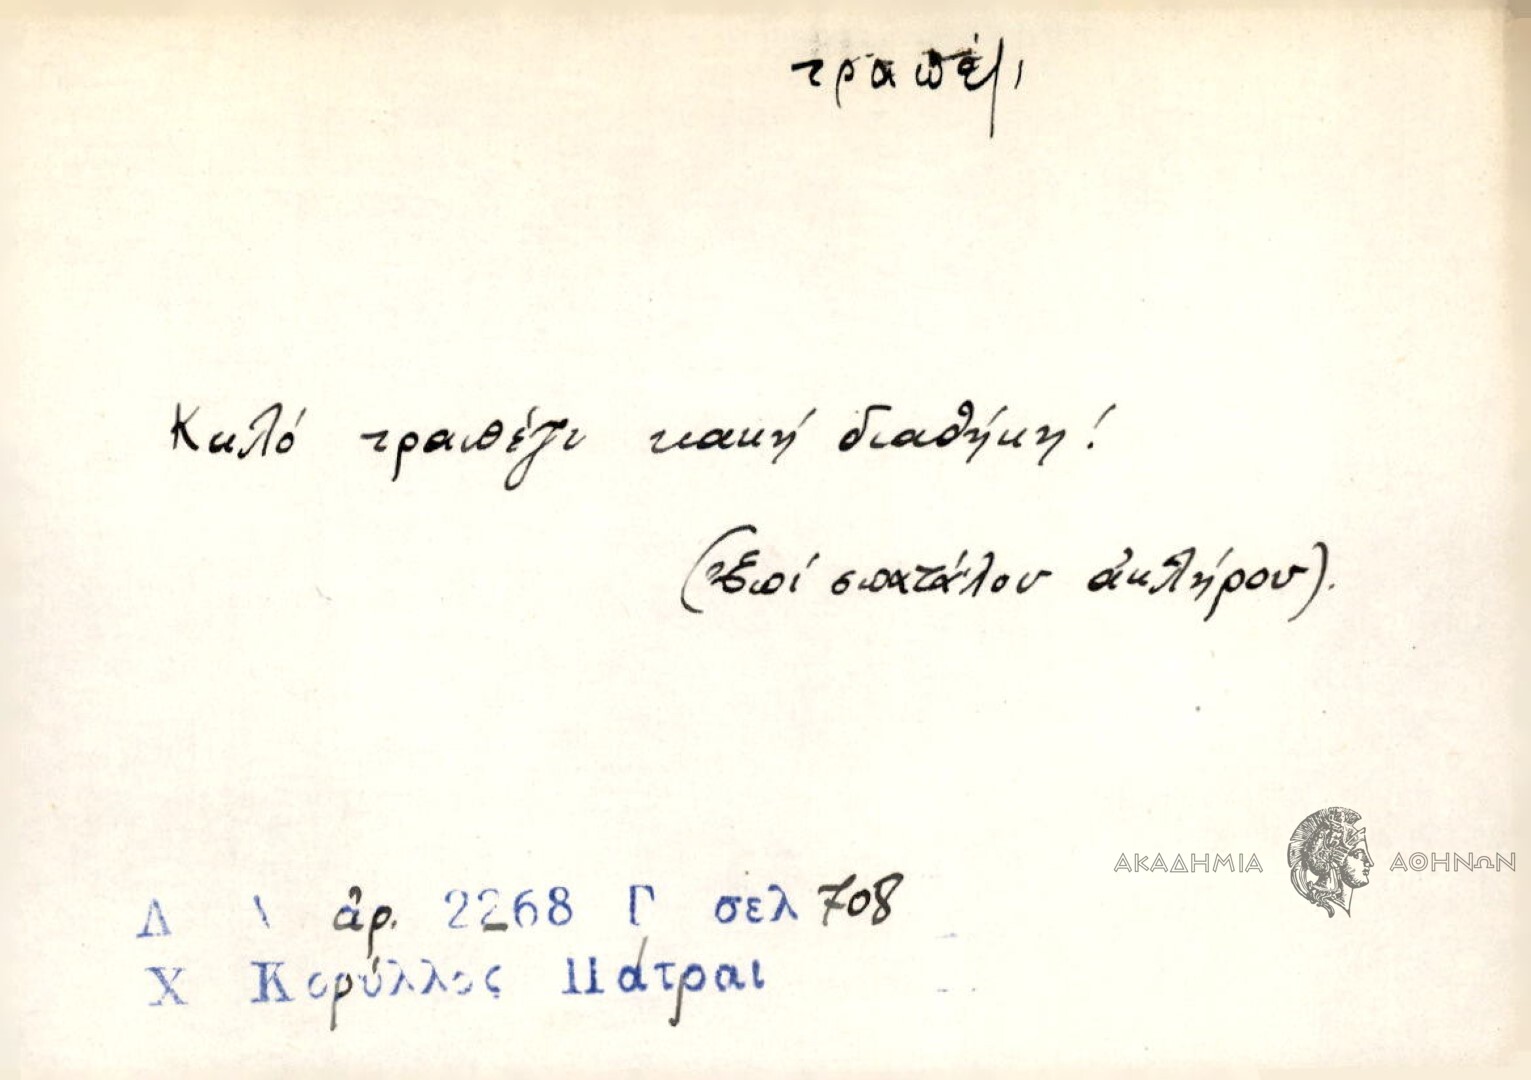 τραπέζι
Καλό τραπέζι κακή διαθήκη!
(Ἐπί σπατάλου ἀκλήρου).
ΑΚΑΔΗΜΙΑ ΑΘΗΝΩΝ
Λ Α ἀρ. 2268 Γ σελ 708
Χ Κορύλλος Πάτραι